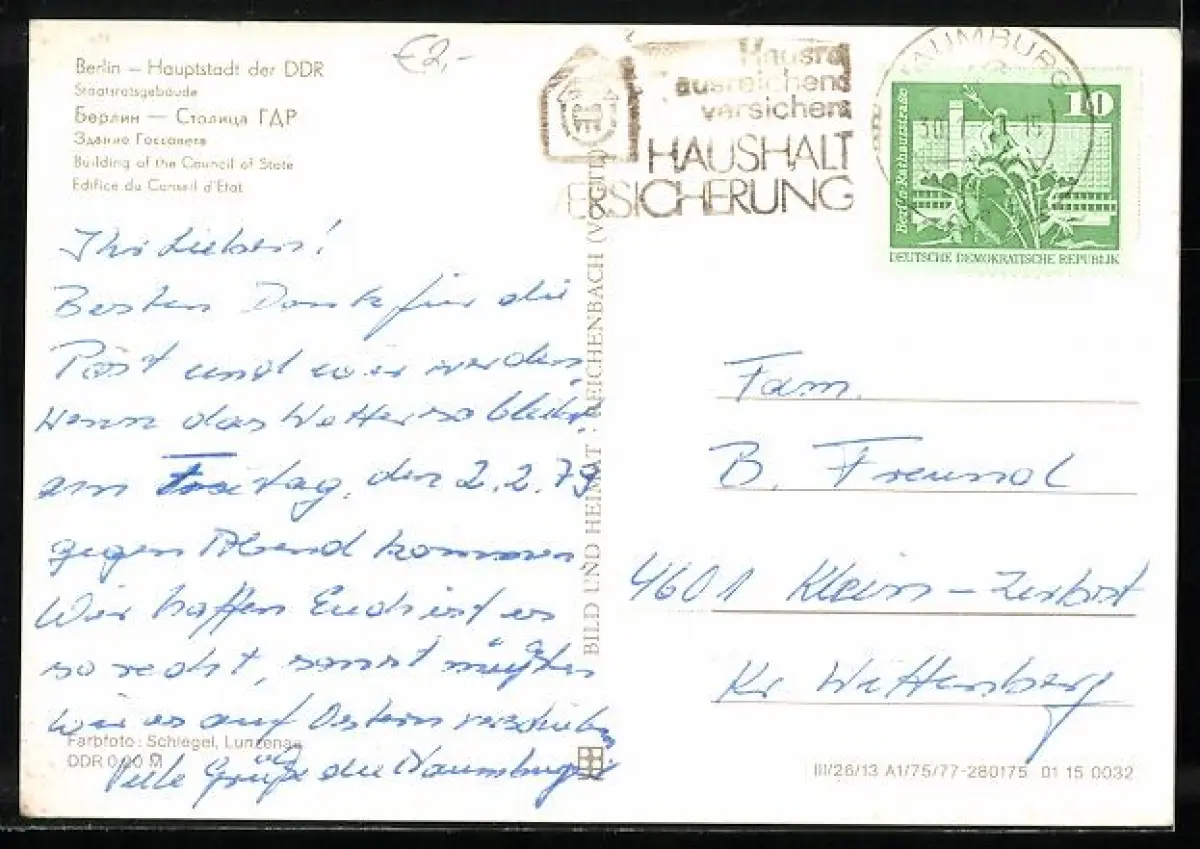 Berlin – Hauptstadt der DDR
Staatsratsgebäude
Берлин — Столица ГДР
Здание Госсовета
Building of the Council of State
Edifice du Conseil d'Etat
€2,-
Hausra
ausreichend
versichern
HAUSHALT
VERSICHERUNG
NAUMBURG
30
10
Berlin-Rathausstraße
DEUTSCHE DEMOKRATISCHE REPUBLIK
Ihr Lieben!
Besten Dank für die
Post und wir werden
wenn das Wetter so bleibt,
am Freitag, den 2.2.79
gegen Abend kommen
Wir hoffen Euch ist es
so recht, sonst müßten
wir es auf Ostern verschieben
Viele Grüße die Naumburger
Farbfoto: Schlegel, Lunzenau
DDR 0,20 M
BILD UND HEIMAT · REICHENBACH (VOGTL)
Fam.
B. Freund
4601 Klein-Zerbst
Kr Wittenberg
III/26/13 A1/75/77-280175 01 15 0032